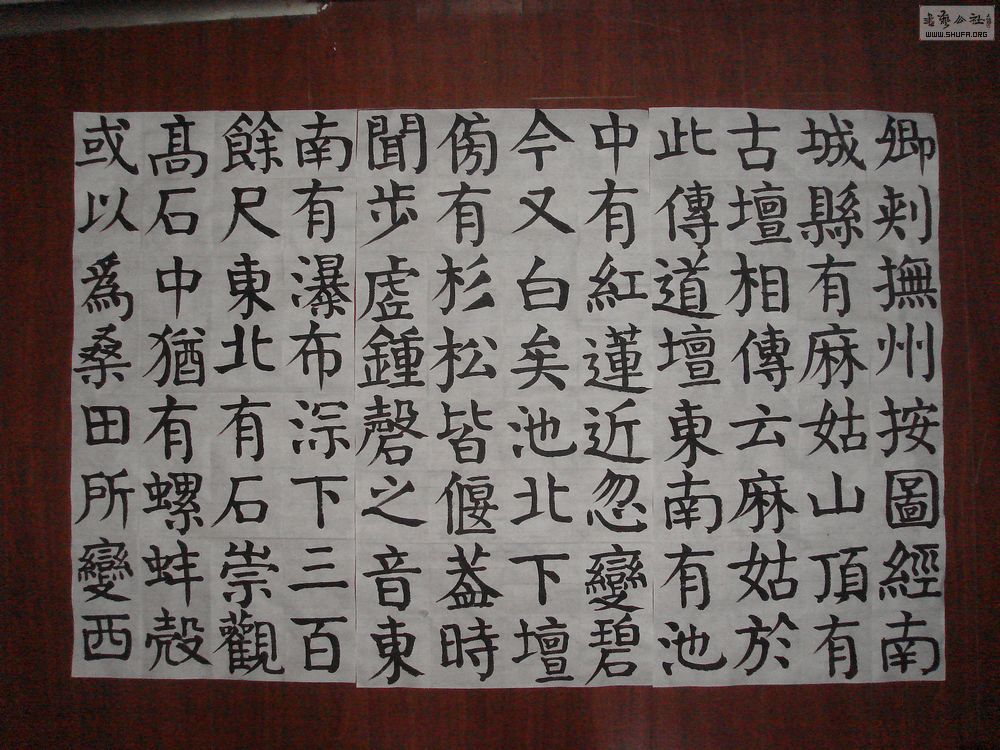 卿刺撫州按圖經南
城縣有麻姑山頂有
古壇相傳云麻姑於
此傳道壇東南有池
中有紅蓮近忽變碧
今又白矣池北下壇
傍有杉松皆偃蓋時
聞步虛鍾磬之音東
南有瀑布淙下三百
餘尺東北有石崇觀
高石中猶有螺蚌殼
或以為桑田所變西
書藝公社
WWW.SHUFA.ORG